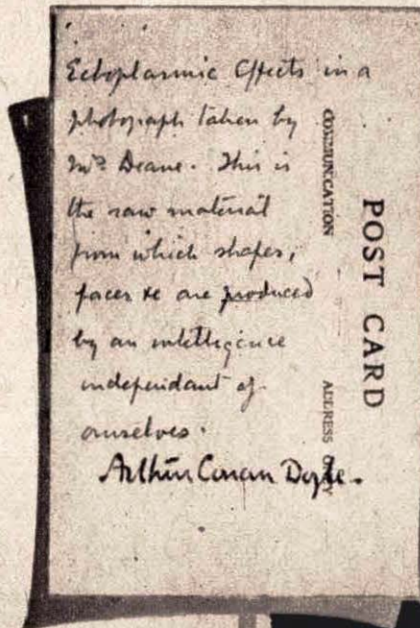 Ectoplasmic Effects in a
photograph taken by
Mrs Deane. This is
the raw material
from which shapes,
faces &c are produced
by an intelligence
independant of
ourselves.
Arthur Conan Doyle.
COMMUNICATION
POST CARD
ADDRESS ONLY